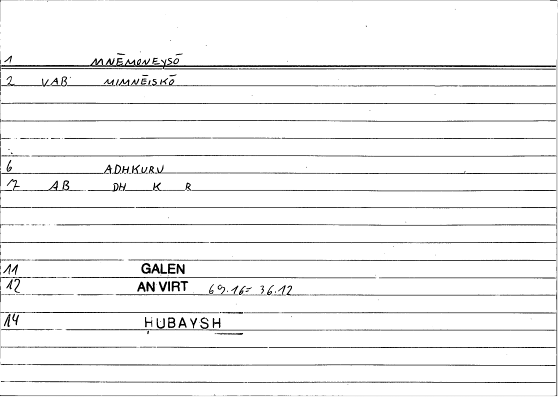 1 MNĒMONEYSŌ
2 VAB MIMNĒISKŌ
6 ADHKURU
7 AB DH K R
11 GALEN
12 AN VIRT 69.16= 36.12
14 ḤUBAYSH